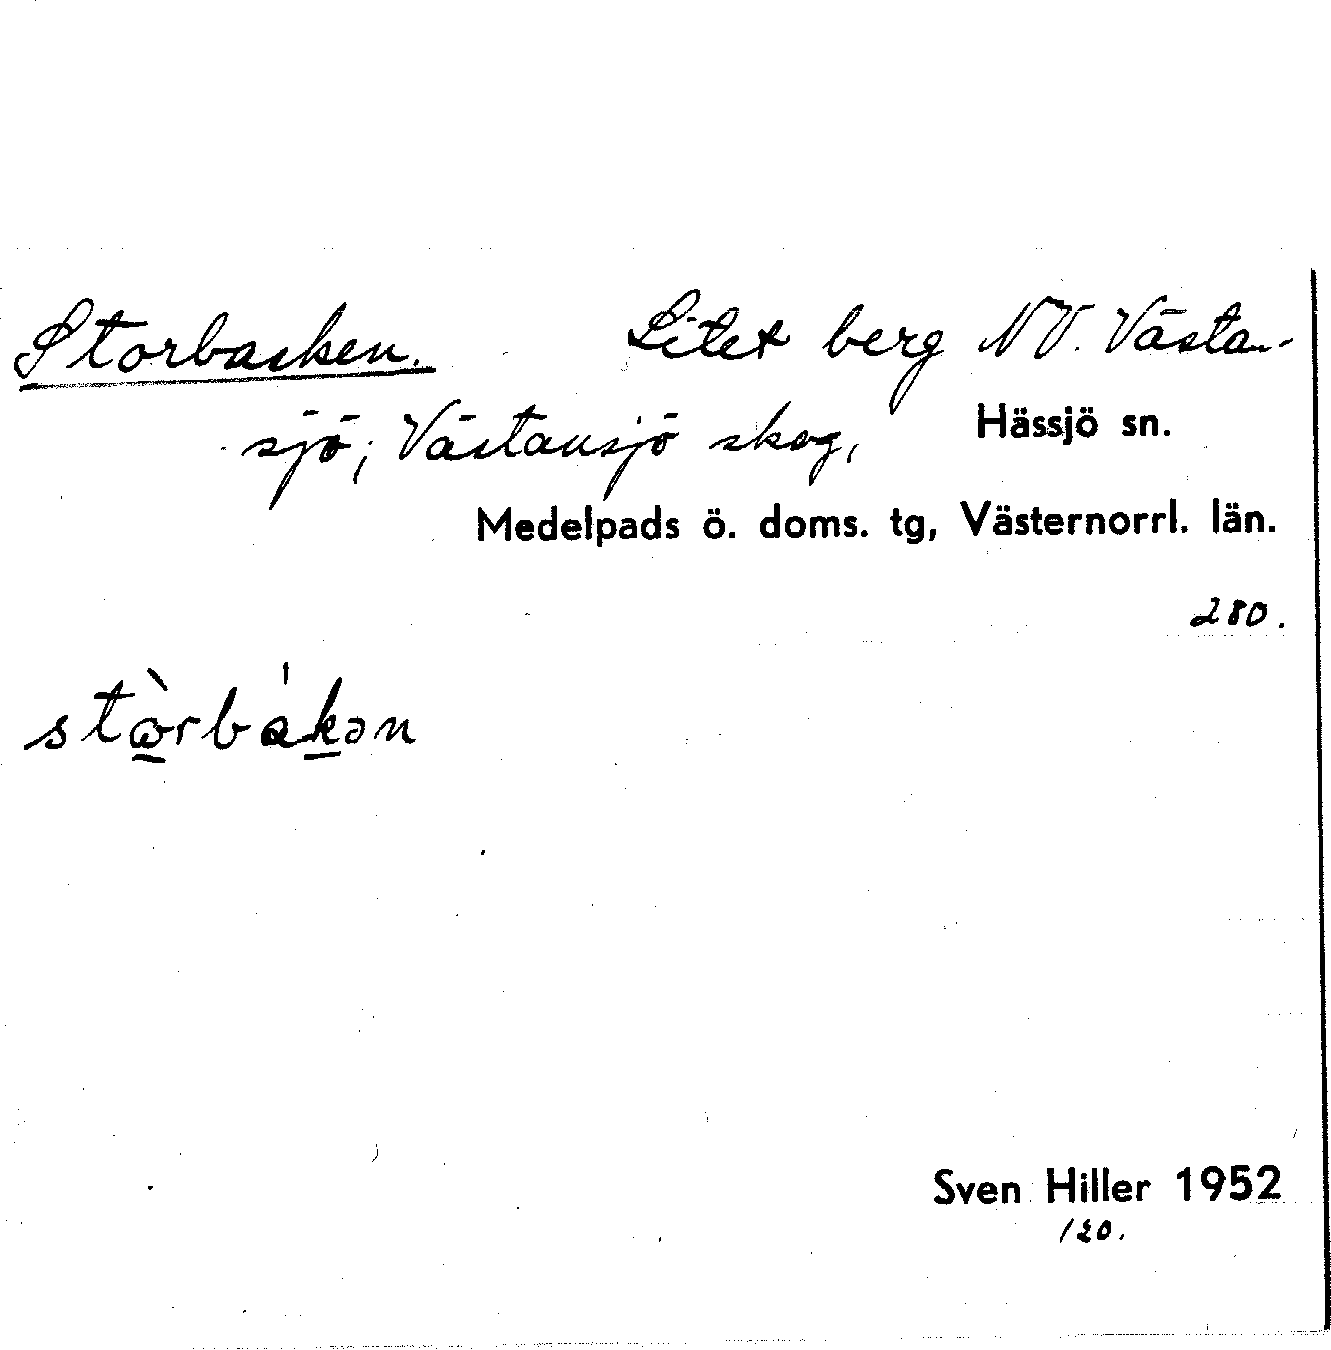 Storbacken. Litet berg NV. Västan-
sjö; Västansjö skog, Hässjö sn.
Medelpads ö. doms. tg, Västernorrl. län.
280.
stɷ̀rbákən
Sven Hiller 1952
120.